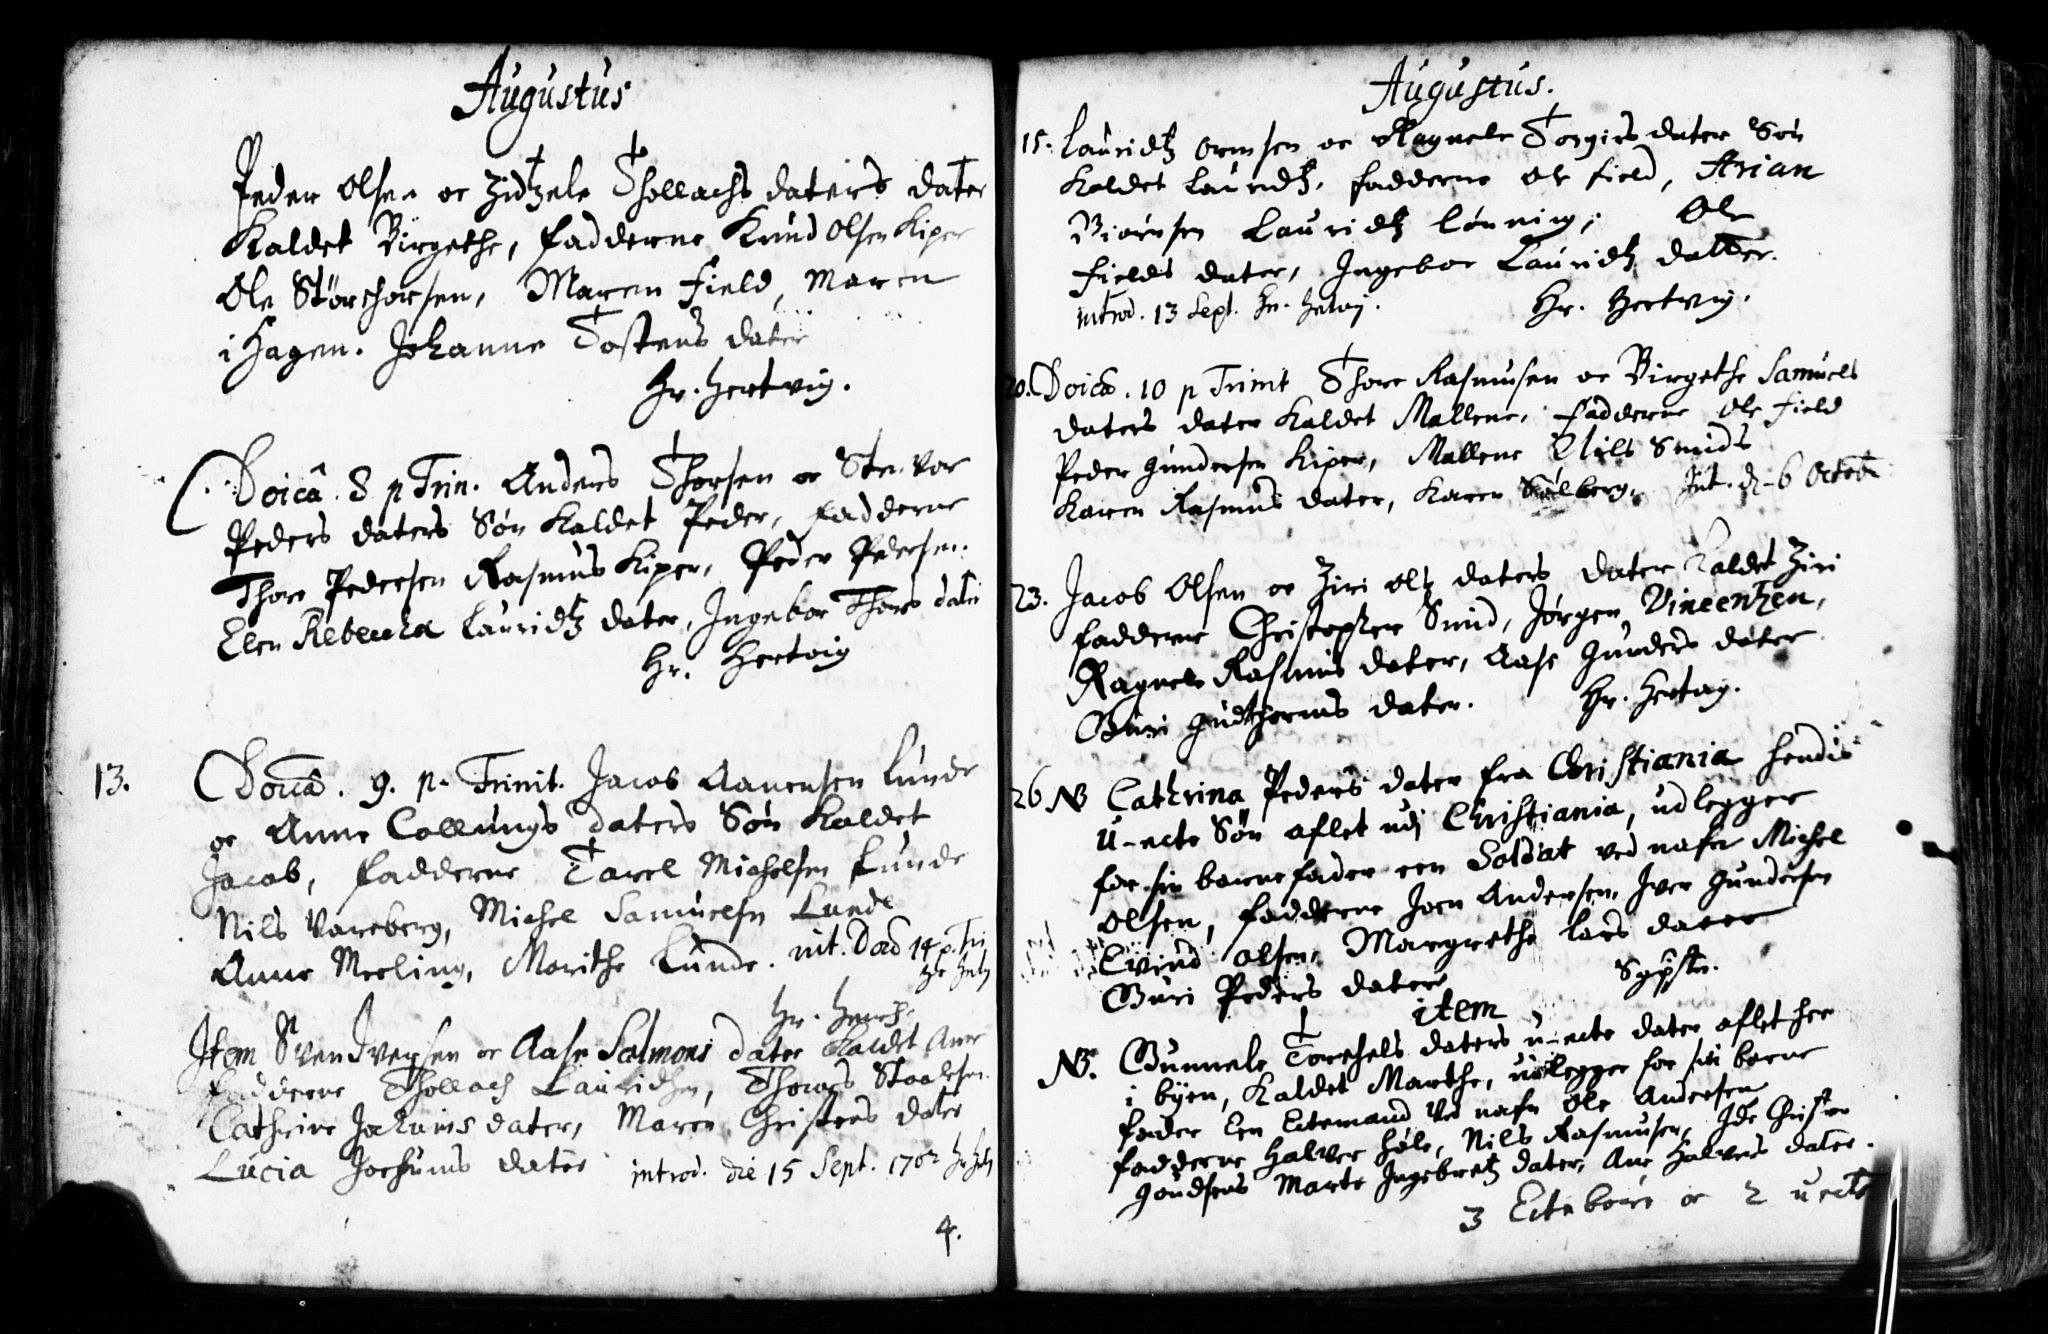 Augustus
Peder Olsen oc Zidtzele Thollachs daters dater
Kaldet Birgethe, fadderne Knud Olsen Kiper
Ole Størchersen, Maren Field, Maren
i Hagen. Johanne Tostens dater
Hr. Hertvig.
Doicâ. 8 p Trin. Anders Thorsen oc Sten vor
Peders daters Søn Kaldet Peder, fadderne
Thore Pedersen Rasmus Kiper, Peder Pedersen.
Elen Rebecha Lauridtz dater, Ingebor Thores dater
Hr. Hertvig
13. Doicâ. 9. p. Trinit. Jacob Aanensen Lunde
oc Anne Collungs daters Søn Kaldet
Jacob, fadderne Tarel Michelsen Lunde
Nils Vareberg, Michel Samuelsen Lunde
Anne Meeling, Marithe Lunde. int. Dod 14 p. Tri
Hr.
Item Svend Iversen oc Aase Salmons dater Kaldet Anne
fadderne Thollach Lauridsen, Thomas Staalesen
Cathrine Jochums dater, Maren Christens dater
Lucia Jochums dater introd. die 15 Sept. 1702
4.
Augustus.
15. Lauridtz Ormsen oc Ragnele Torgirs dater Søn
Kaldet Lauridtz, fadderne Ole field, Arian
Biørnsen Lauridtz Lønning, Ole
fields dater, Ingebor Lauridtz datter.
introd. 13 Sept.
Hr. Hertvig.
20. Doicâ. 10 p Trinit Thore Rasmusen oc Birgethe Samuels
daters dater Kaldet Mallene, fadderne Ole field
Peder Gundersen Kiper, Mallene Nils Smids
Karen Rasmus dater, Karen Sølberg. Int. d. 6 Octob
23. Jacob Olsen oc Ziri Oltz daters dater Kaldet Ziri
fadderne Christopher Smid, Jørgen Vincentzen,
Ragnele Rasmus dater, Aase Gunders dater
Guri Gudthorms dater. Hr. Hertvig.
26 NB Cathrina Peders dater fra Christiania hendis
U-ecte Søn aflet udj Christiania, udlegger
for sin barnefader een Soldat ved nafn Michel
Olsen, fadderne Joen Andersen, Iver Gundersen
Evind Olsen, Margrethe Lars dater
Guri Peders dater
item
NB. Gunnele Torchels daters u-ecte dater aflet her
i byen, Kaldet Marthe, udlegger for sin barne
fader Een Ectemand ved nafn Ole Andersen
fadderne Halver Høle, Nils Rasmusen, Ide Christen
Goudsens Marte Ingebretz dater, Ane Halvers dater.
3 Ecte børn oc 2 uecte